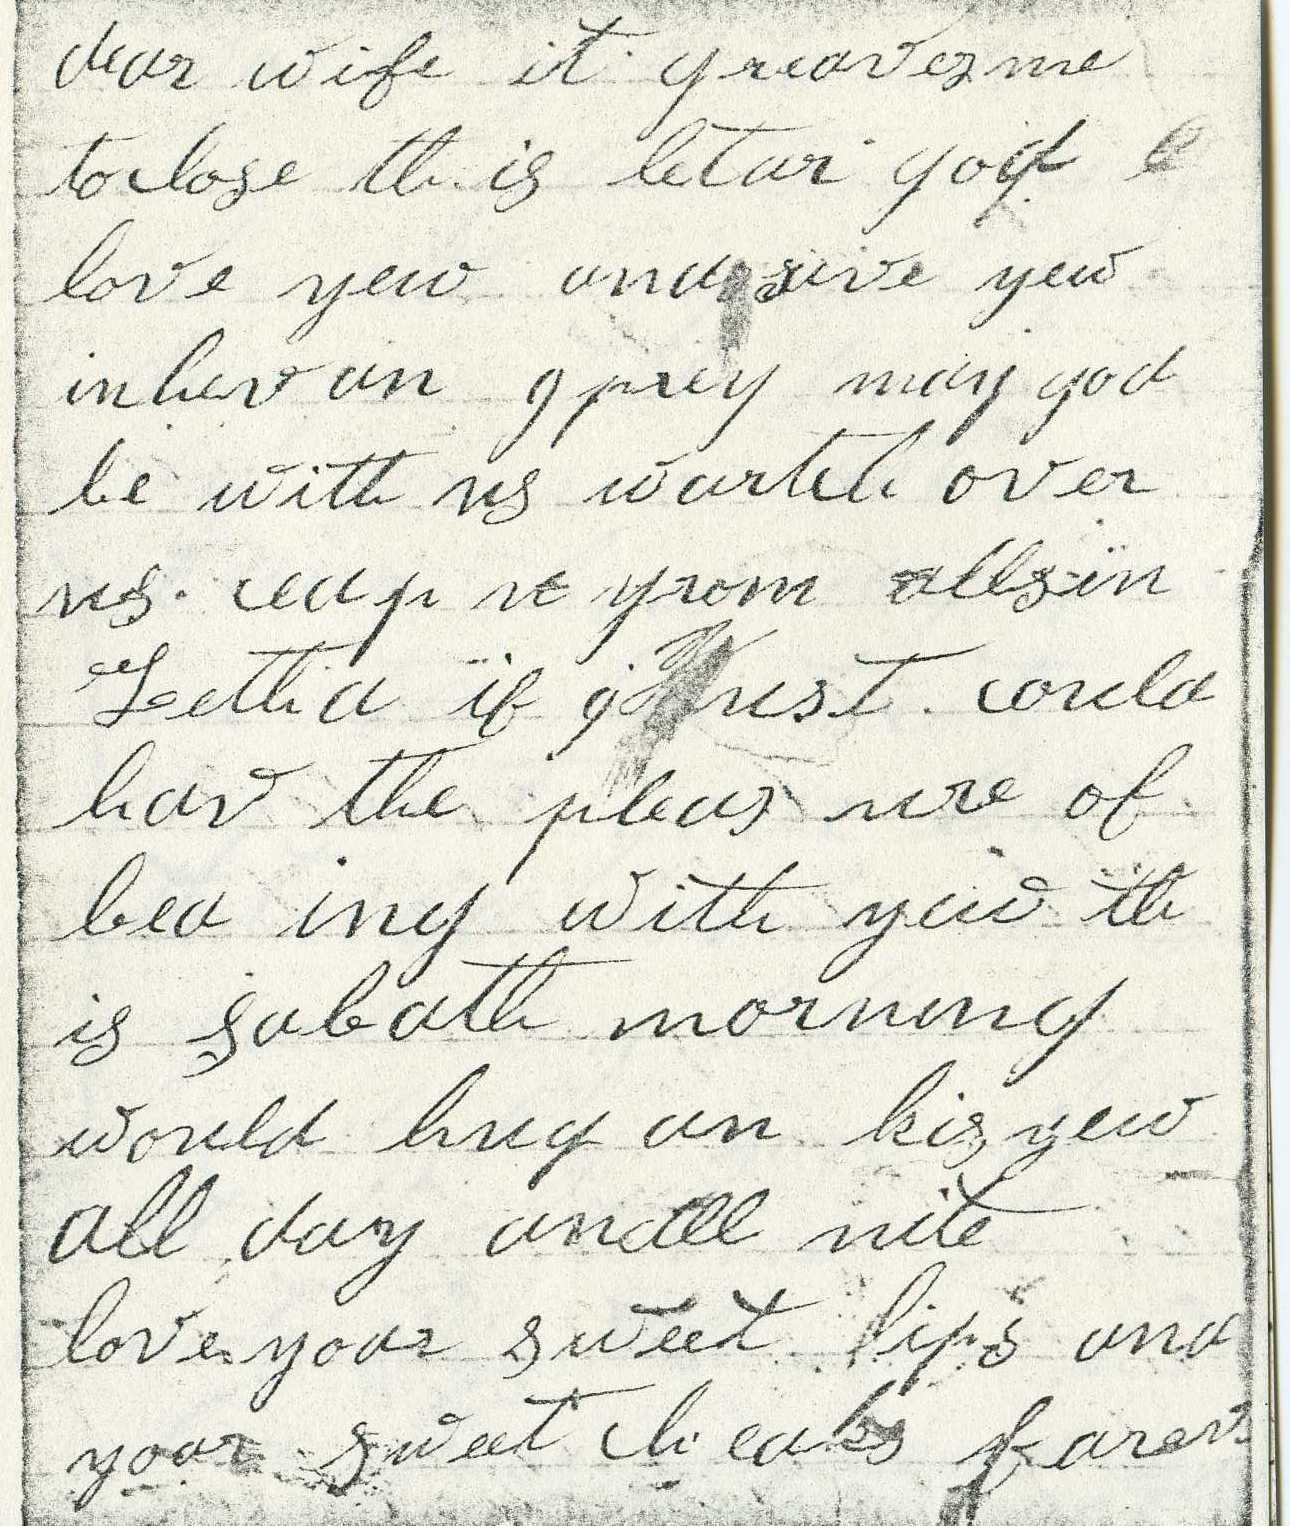 dear wife it greaves me
to close th is letar god
love yew and sive yew
in hav an I prey may god
be with us wartch over
us. ceap us from all sin
Letha if I just could
hav the pleas ure of
bea ing with yew th
is sabath morning
would hug an kis yew
all day and all nite
love your sweet lips and
your sweet cheaks farew